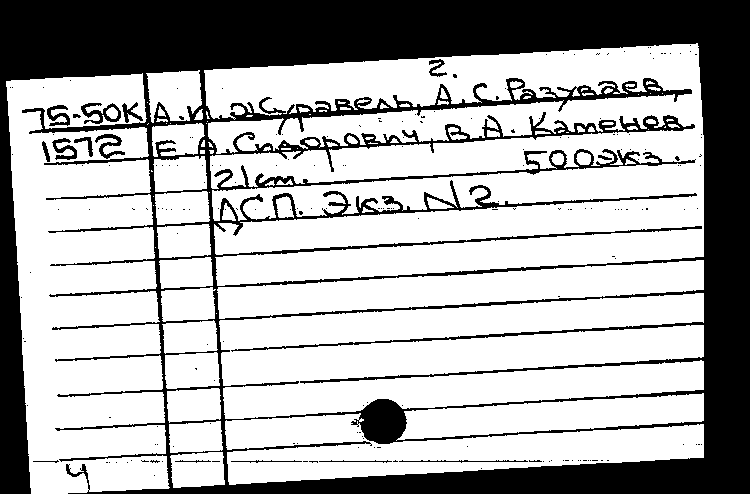 2.
75-50К А.П. Журавель, А.С. Разуваев,
1572 Е.А. Сидорович, В.А. Каменев.
21cm. 500экз.
ДСП. Экз. N2.
4